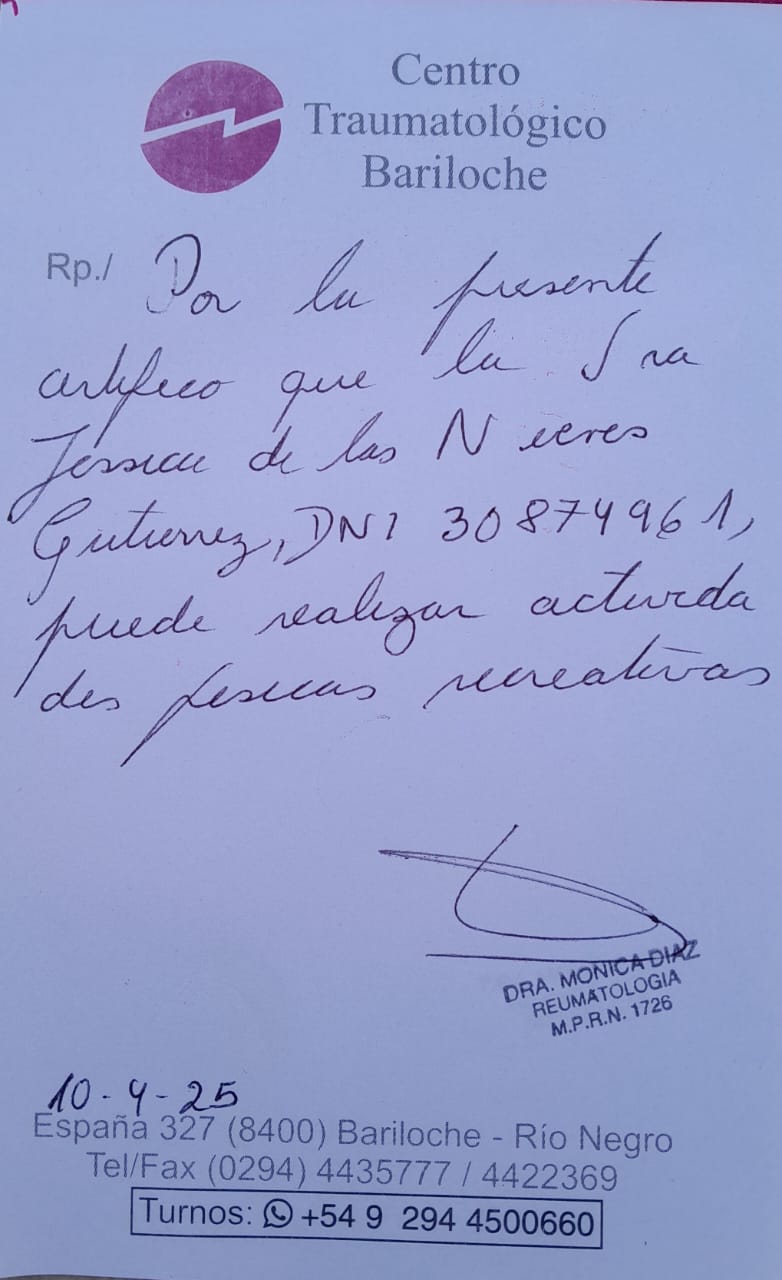 Centro
Traumatológico
Bariloche
Rp./ Por la presente
certifico que la Sra
Jessica de las Nieves
Gutierrez, DNI 30874961,
puede realizar activida
des fisicas recreativas
DRA. MONICA DIAZ
REUMATOLOGIA
M.P.R.N. 1726
10-4-25
España 327 (8400) Bariloche - Río Negro
Tel/Fax (0294) 4435777 / 4422369
Turnos: +54 9 294 4500660